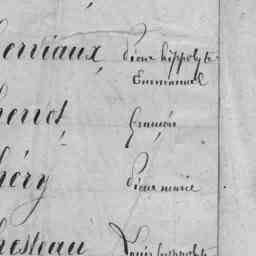 erriaux Pierre hippolyte
Emmanuel
henot François
héry Pierre marie
hesteau Louis hyppolyte